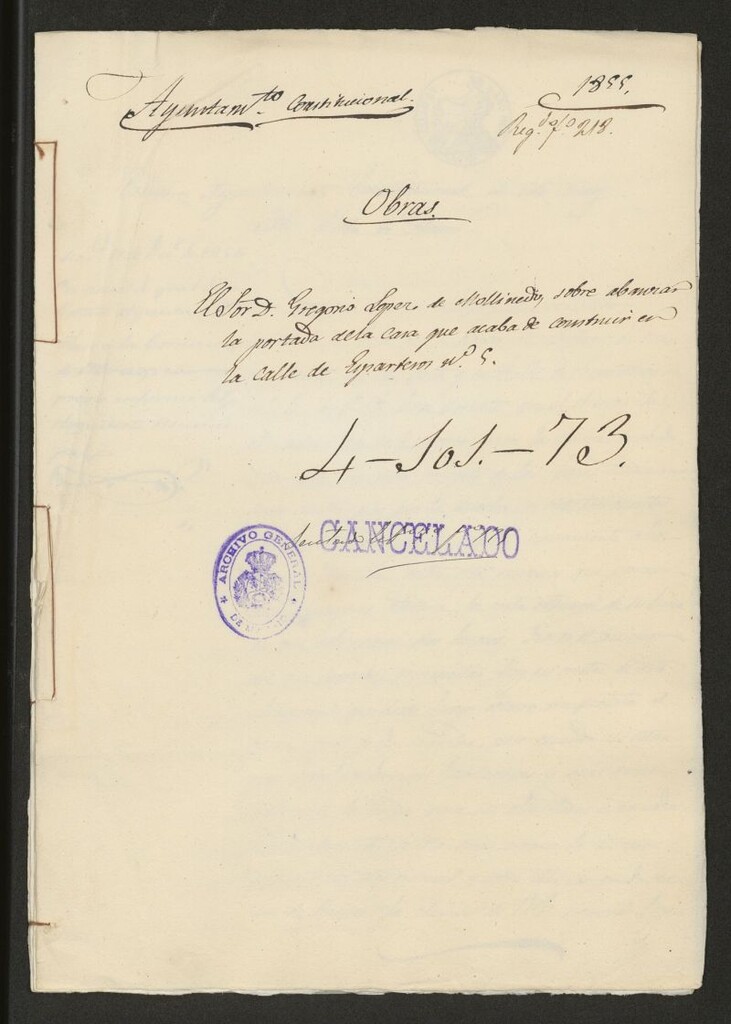 Ayuntam.to Constitucional.
1855.
Reg.do fo 218.
Obras.
El Sor D. Gregorio Lopez de Mollinedo, sobre abanzar
la portada dela casa que acaba de construir en
la calle de Esparteros no. 5.
4-101.-73.
CANCELADO
ARCHIVO GENERAL